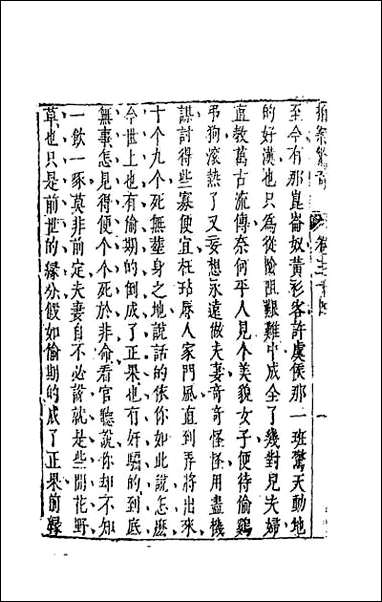 拍案驚奇 卷之
至今有那崑崙奴黃衫客許虞候那一班驚天動地
的好漢也只為從險阻艱難中成全了幾對兒夫婦
直教萬古流傳奈何平人見个美貌女子便待偷鷄
弔狗滾熱了又妄想永遠做夫妻奇奇怪怪用盡機
謀討得些寡便宜枉玷辱人家門風直到弄將出來
十个九个死無塟身之地說話的依你如此說怎麽
今世上也有偷期的倒成了正果也有奸騙的到底
無事怎見得便个个死於非命看官聽說你却不知
一飲一啄莫非前定夫妻自不必說就是些閒花野
草也只是前世的緣分假如偷期的成了正果前緣